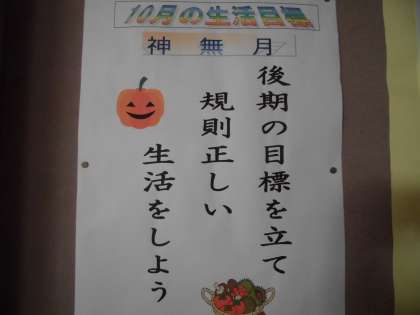 10月の生活目標
神無月
後期の目標を立て
規則正しい
生活をしよう